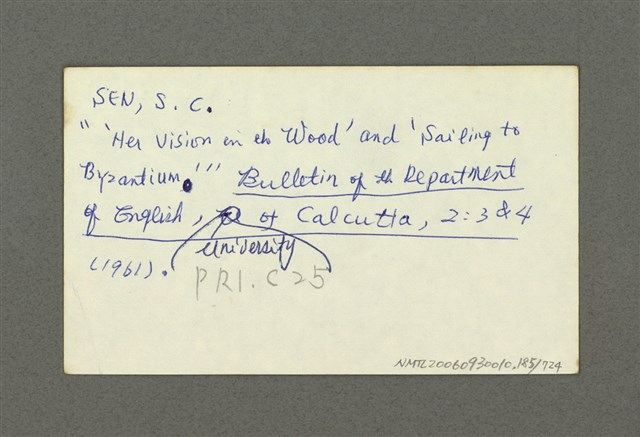 SEN, S. C.
" 'Her Vision in the Wood' and 'Sailing to
Byzantium.'" Bulletin of the Department
of English, of Calcutta, 2:3 & 4
University
(1961).
PR1.C25
NMTL20060930010.185/724